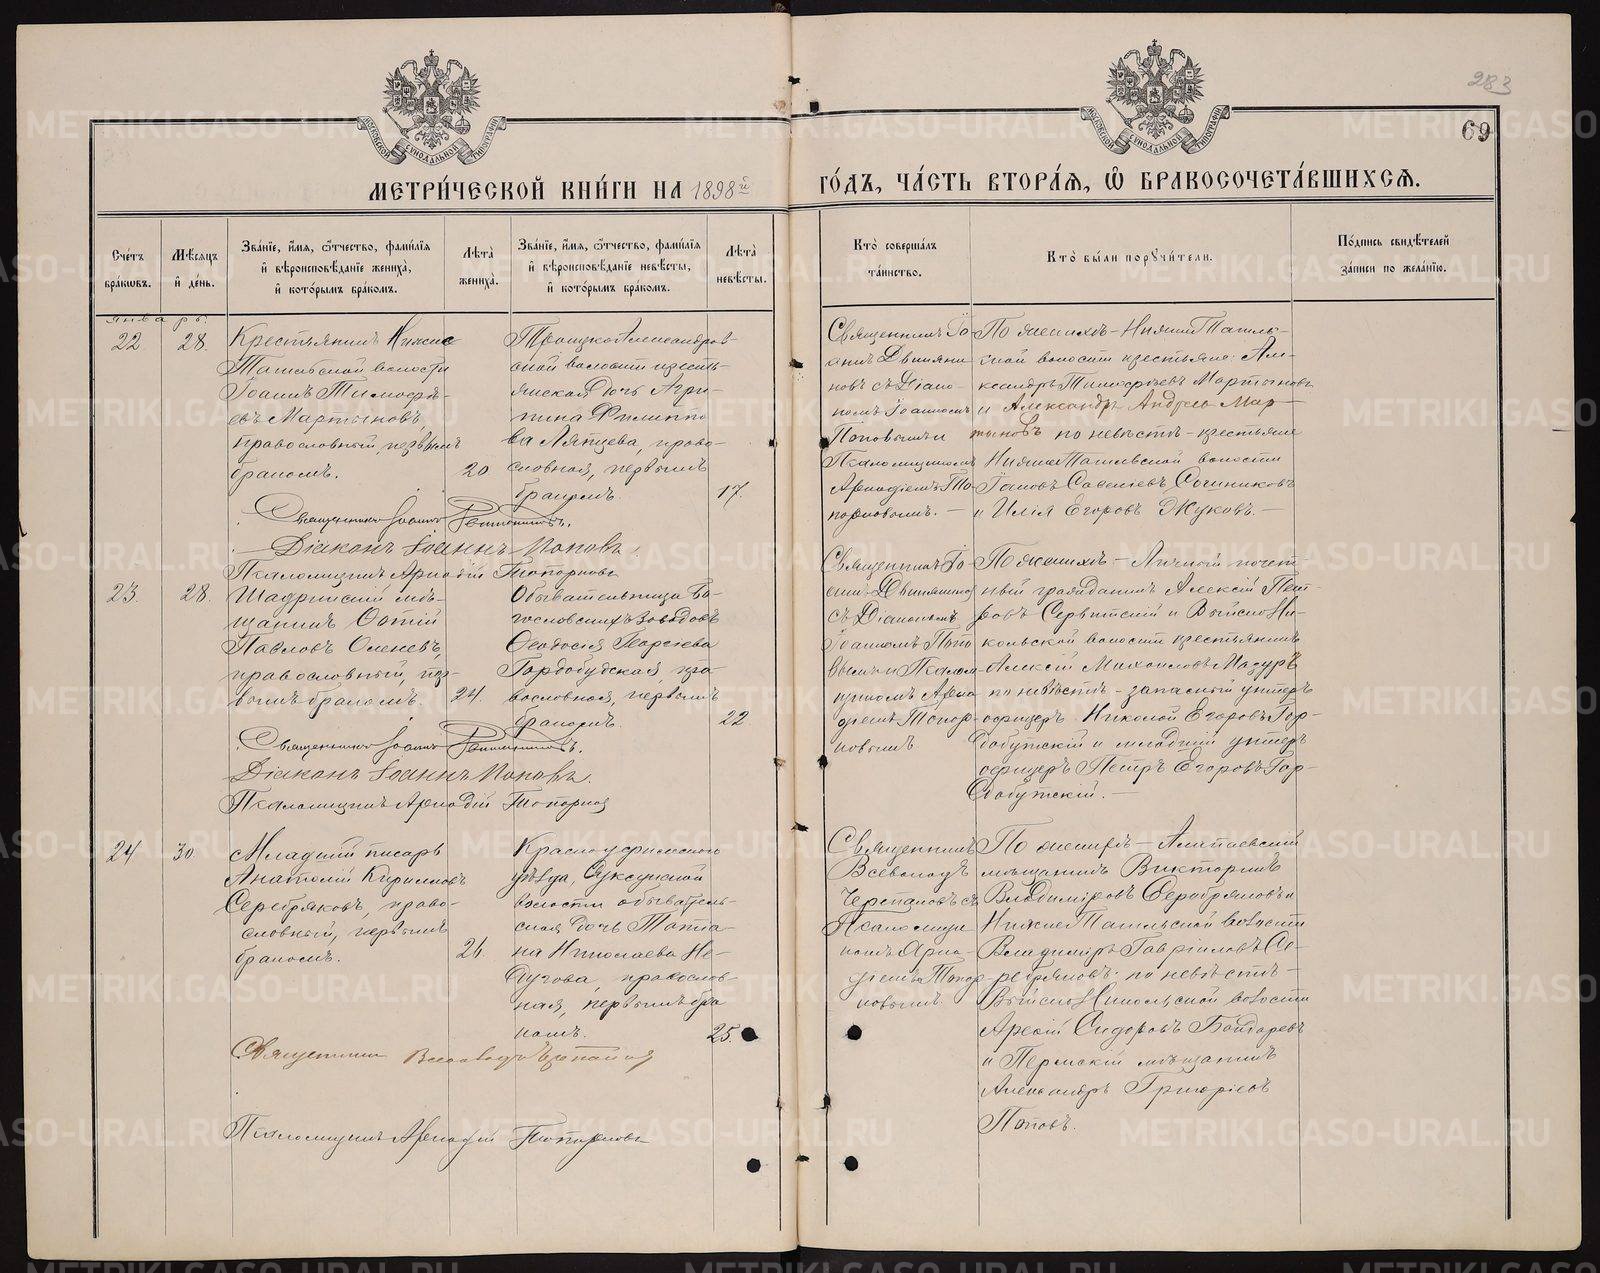 283
69
МЕТРИ́ЧЕСКОЙ КНИ́ГИ НА 1898й
ГО́ДЪ, ЧА́СТЬ ВТОРА́Ѧ, Ѿ БРАКОСОЧЕТА́ВШИХСѦ.
Сче́тъ бра́кѡвъ.
Мѣ́сѧцъ и҆ де́нь.
Зва́нїе, и҆́мѧ, ѻ҆́тчество, фами́лїѧ
и҆ вѣроисповѣ́данїе жениха̀,
и҆ кото́рымъ бра́комъ.
Лѣ́та жениха̀.
Зва́нїе, и҆́мѧ, ѻ҆́тчество, фами́лїѧ
и҆ вѣроисповѣ́данїе невѣ́сты,
и҆ кото́рымъ бра́комъ.
Лѣ́та невѣ́сты.
Кто̀ соверша́лъ
та́инство.
Кто̀ бы́ли порꙋчи́тели.
По́дпись свидѣ́телей
за́писи по жела́нїю.
январь.
22
28.
Крестьянинъ Нижне
Тагильской волости
Іоаннъ Тимофѣ-
евъ Мартыновъ,
православный, первымъ
бракомъ.
20
Троицко Александров-
ской волости кресть-
янская дочь Агри-
пина Филиппо
ва Ляпцева, право-
славная, первымъ
бракомъ.
17.
Священникъ Іо
аннъ Двиняни
новъ съ Діако-
номъ Іоанномъ
Поповымъ и
Псаломщикомъ
Аркадіемъ То
порковымъ. —
По женихѣ - Нижне Тагиль-
ской волости крестьяне Але-
ксандръ Тимофѣевъ Мартыновъ
и Александръ Андреевъ Мар-
тыновъ по невѣстѣ - крестьяне
Нижне Тагильской волости
и Илія Егоровъ Жуковъ. —
Священникъ Іоаннъ
Діаконъ Іоаннъ Поповъ.
Псаломщикъ Аркадій Топорковъ
23.
28.
Шадринскій мѣ-
щанинъ
Павловъ
православный, пер-
вымъ бракомъ.
24.
Обывательница Бо-
гословскихъ Заводовъ
Ѳеодосія Георгіева
Гордобудская, пра
вославная, первымъ
бракомъ.
22
Священникъ Іо
аннъ Двиняни
съ Діакономъ
Іоанномъ Попо
вымъ и Псалом
щикомъ Арка
діемъ Топор-
ковымъ
По женихѣ - Личный почет
ный гражданинъ Алексій Пет-
ровъ и Выйско Ни-
кольской волости крестьянинъ
Алексій Михаиловъ Мазуръ
по невѣстѣ - запасный унтеръ
офицеръ Николай Егоровъ Гор-
добутскій и младшій унтеръ
офицеръ Петръ Егоровъ Гор-
добутскій. —
Священникъ Іоаннъ
Діаконъ Іоаннъ Поповъ.
Псаломщикъ Аркадій Топорковъ
24
30.
Младшій писарь
Анатолій Кириловъ
Серебряковъ, право-
славный, первымъ
бракомъ.
Красноуфимскаго
уѣзда, Суксунской
волости обыватель-
ская дочь Татіа-
на Николаева Не-
православ-
ная, первымъ бра
комъ.
25.
Священникъ
Всеволодъ
Черепановъ съ
Псаломщи
комъ Арка-
діемъ Топор-
ковымъ.
По женихѣ - Алапаевскій
мѣщанинъ Викторинъ
Владиміровъ Серебряковъ и
Нижне Тагильской волости
Владиміръ Гавріиловъ Се-
ребряковъ. по невѣстѣ -
Выйско Никольской волости
Сидоровъ Бондаревъ
и Пермскій мѣщанинъ
Александръ Григорьевъ
Поповъ.
Священникъ Всеволодъ Черепановъ
Псаломщикъ Аркадій Топорковъ
METRIKI.GASO-URAL.RU